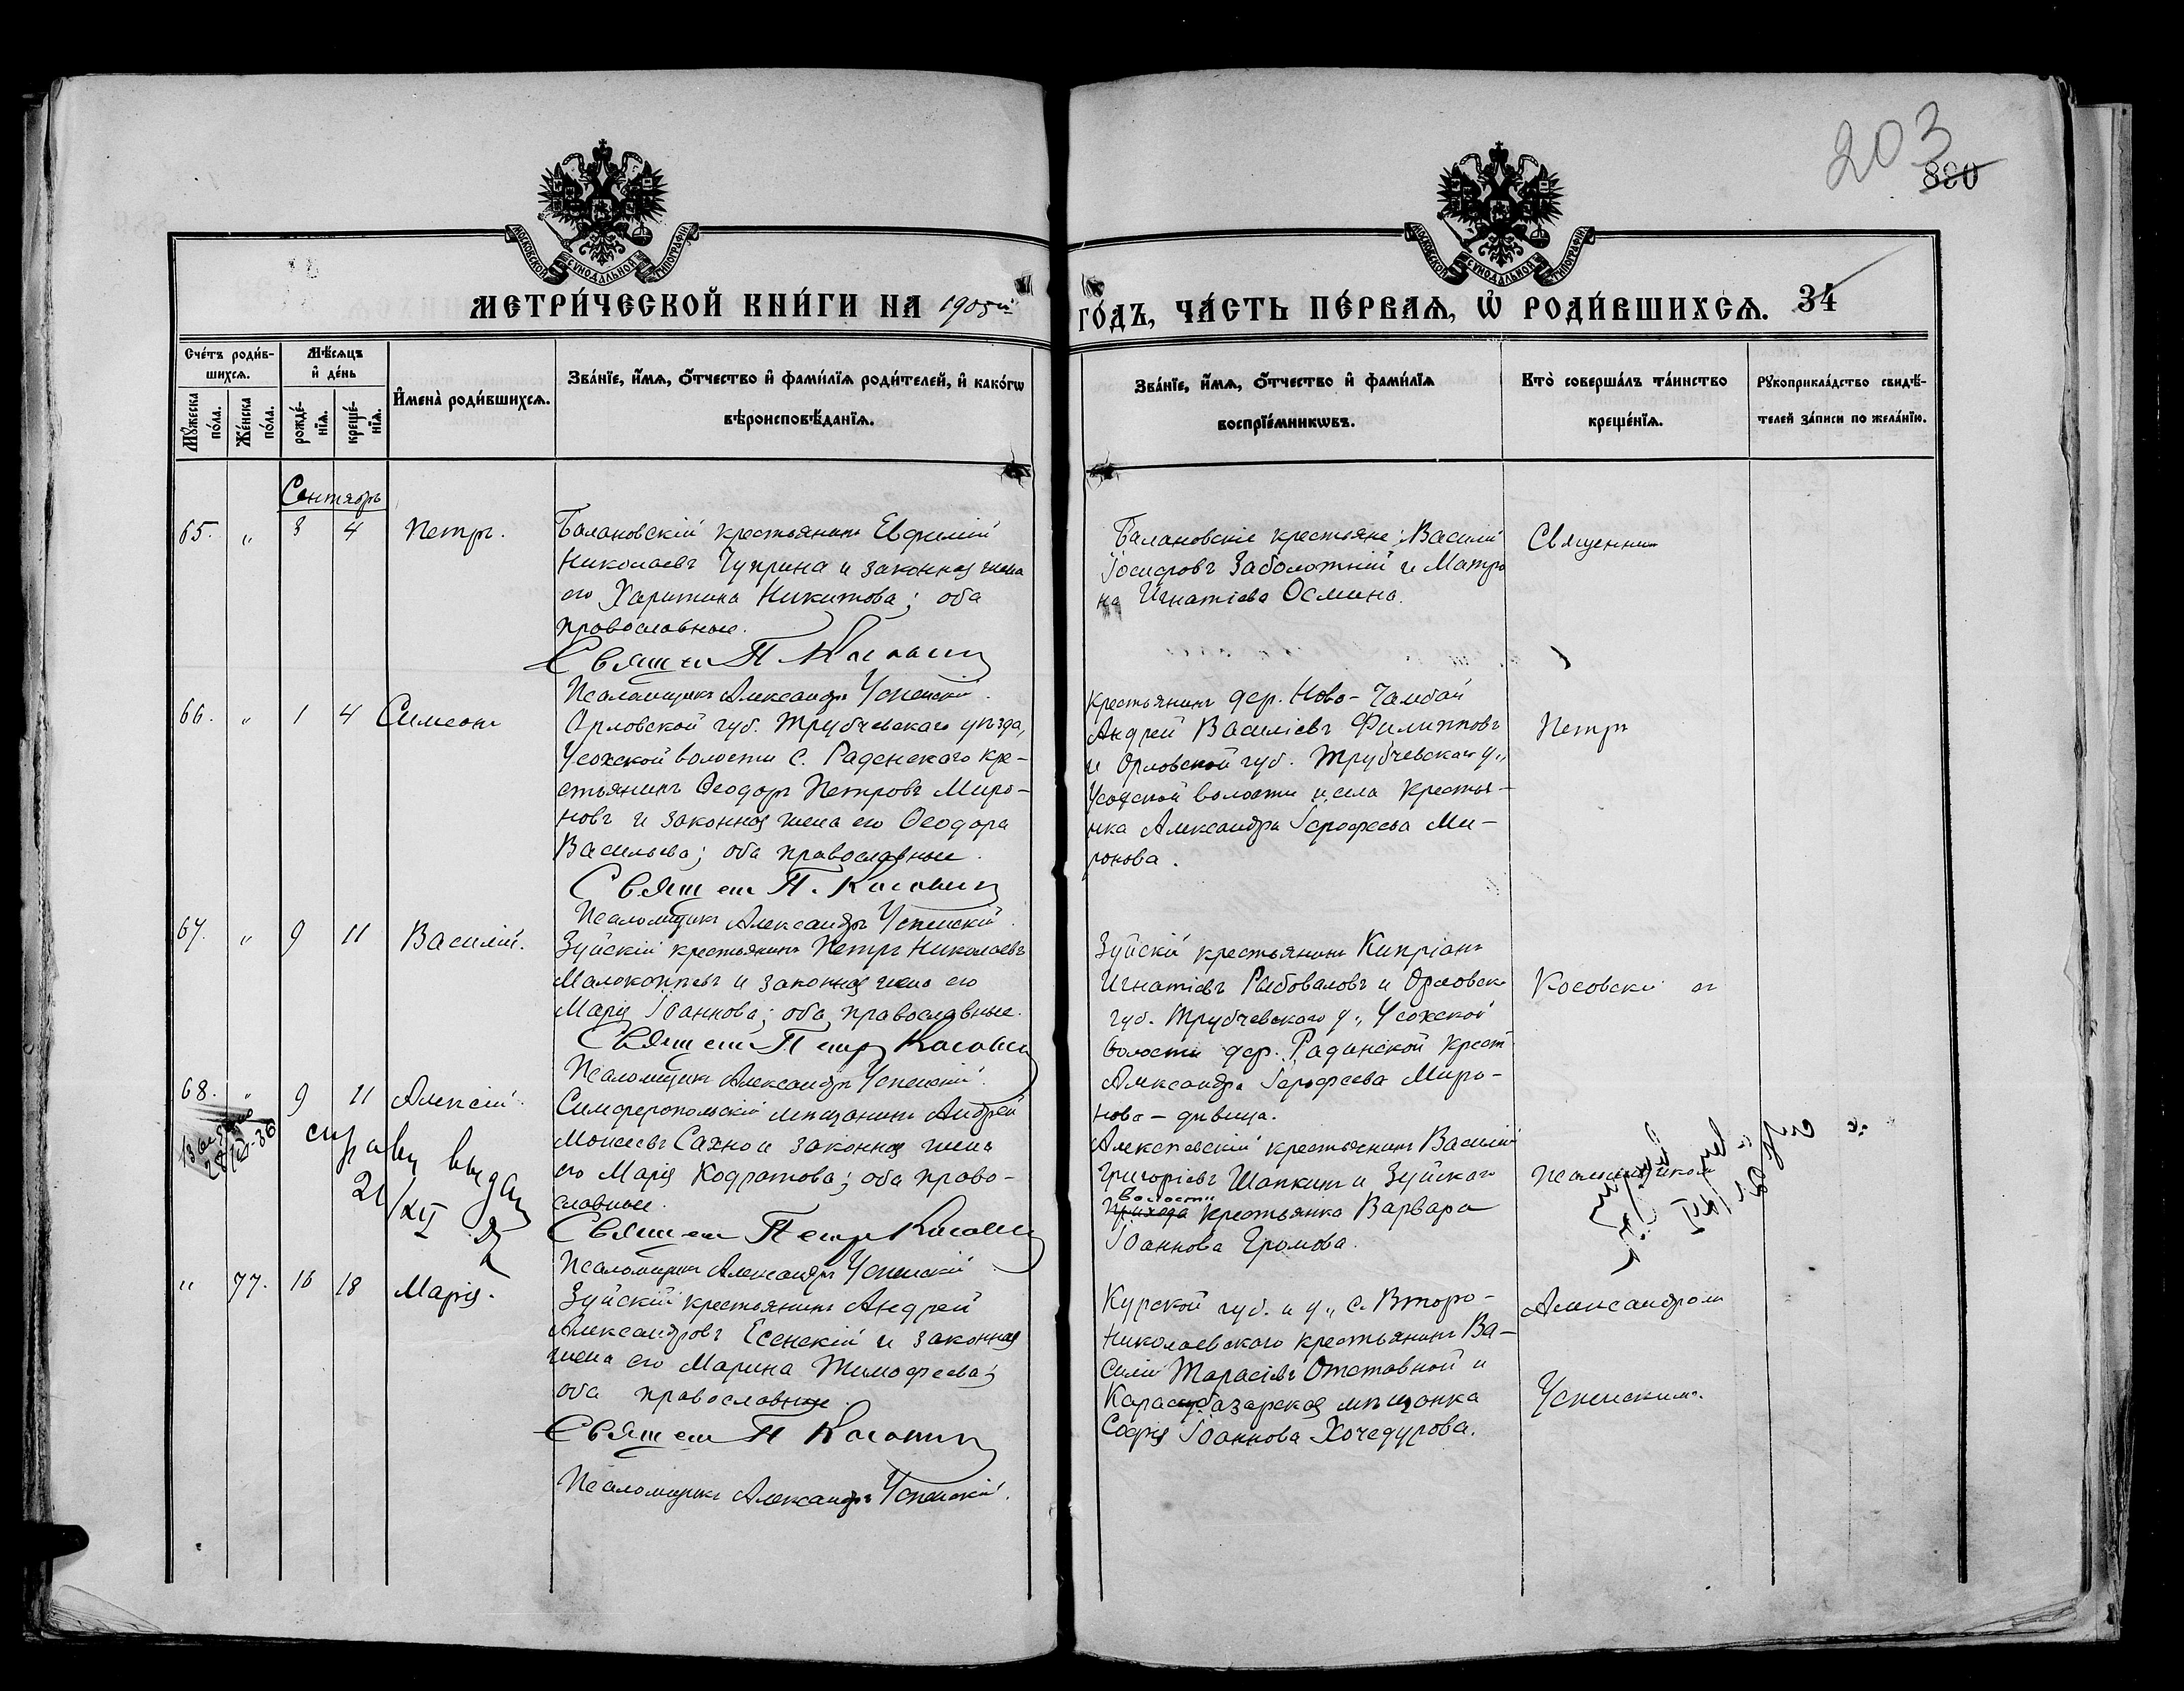 203
880
МОСКОВСКОЙ СѴНОДАЛЬНОЙ ТИПОГРАФІИ
МОСКОВСКОЙ СѴНОДАЛЬНОЙ ТИПОГРАФІИ
МЕТРИ́ЧЕСКОЙ КНИ́ГИ НА 1905й
ГО́ДЪ, ЧА́СТЬ ПЕ́РВАѦ, Ѡ҆ РОДИ́ВШИХСѦ. 34
Сче́тъ роди́в-
шихсѧ.
Мꙋ́жеска по́ла.
Же́нска по́ла.
Мѣ́сѧцъ
и҆ де́нь
рожде́-
нїѧ.
креще́-
нїѧ.
И҆мена̀ роди́вшихсѧ.
Зва́нїе, и҆́мѧ, ѻ҆́тчество и҆ фами́лїѧ роди́телей, и҆ како́гѡ
вѣроисповѣ́данїѧ.
Зва́нїе, и҆́мѧ, ѻ҆́тчество и҆ фами́лїѧ
воспрїе́мникѡвъ.
Кто̀ соверша́лъ та́инство
креще́нїѧ.
Рꙋкоприкла́дство свидѣ́-
телей за́писи по жела́нїю.
Сентябрь
65. " 3 4 Петръ.
Балановскій крестьянинъ Евфимій
Николаевъ Чуприна и законная жена
его Харитина Никитова; оба
православные.
Священ П. Косовскій
Псаломщикъ Александръ Успенскій.
Балановскіе крестьяне: Василій
Іосифовъ Заболотній и Матро
на Игнатіева Осмина.
Священни
66. " 1 4 Симеонъ
Орловской губ. Трубчевскаго уѣзда,
Усохской волости с. Раденскаго кре-
стьянинъ Ѳеодоръ Петровъ Миро-
новъ и законная жена его Ѳеодора
Васильева; оба православные.
Священ П. Косовскій
Псаломщикъ Александръ Успенскій.
Крестьянинъ дер. Ново-Чамбай
Андрей Василіевъ Филипповъ
и Орловской губ. Трубчевскаго у.,
Усохской волости и села крестья-
нка Александра Іерофеева Ми-
ронова.
Петръ
67. " 9 11 Василій.
Зуйскій крестьянинъ Петръ Николаевъ
и законная жена его
Марія Іоаннова; оба православные.
Священ Петръ Косовскій
Псаломщикъ Александръ Успенскій.
Зуйскій крестьянинъ Кипріанъ
Игнатіевъ Рыбоваловъ и Орловск
губ. Трубчевскаго у., Усохской
волости дер. Радинской крест
Александра Іерофеева Миро-
нова - дѣвица.
Косовскій съ
68. " 9 11 Алексій.
28/IX-36
справ выдан
21/XI
Симферопольскій мѣщанинъ Андрей
Моисеевъ Сахно и законная жена
его Марія Кодратова; оба право-
славные.
Священ Петръ Косовскій
Псаломщикъ Александръ Успенскій
Алексѣевскій крестьянинъ Василій
Григоріевъ Шапкинъ и Зуйскаго
волости
прихода крестьянка Варвара
Іоаннова Громова.
Псаломщикомъ
" 77. 16 18 Марія.
Зуйскій крестьянинъ Андрей
Александровъ Есенскій и законная
жена его Марина Тимофеева;
оба православные.
Священ П Косовскій
Псаломщикъ Александръ Успенскій.
Курской губ. и у., с. Второ-
Николаевскаго крестьянинъ Ва-
силій Тарасіевъ Отставной и
Карасубазарская мѣщанка
Софія Іоаннова Хочедурова.
Александромъ
Успенскимъ.